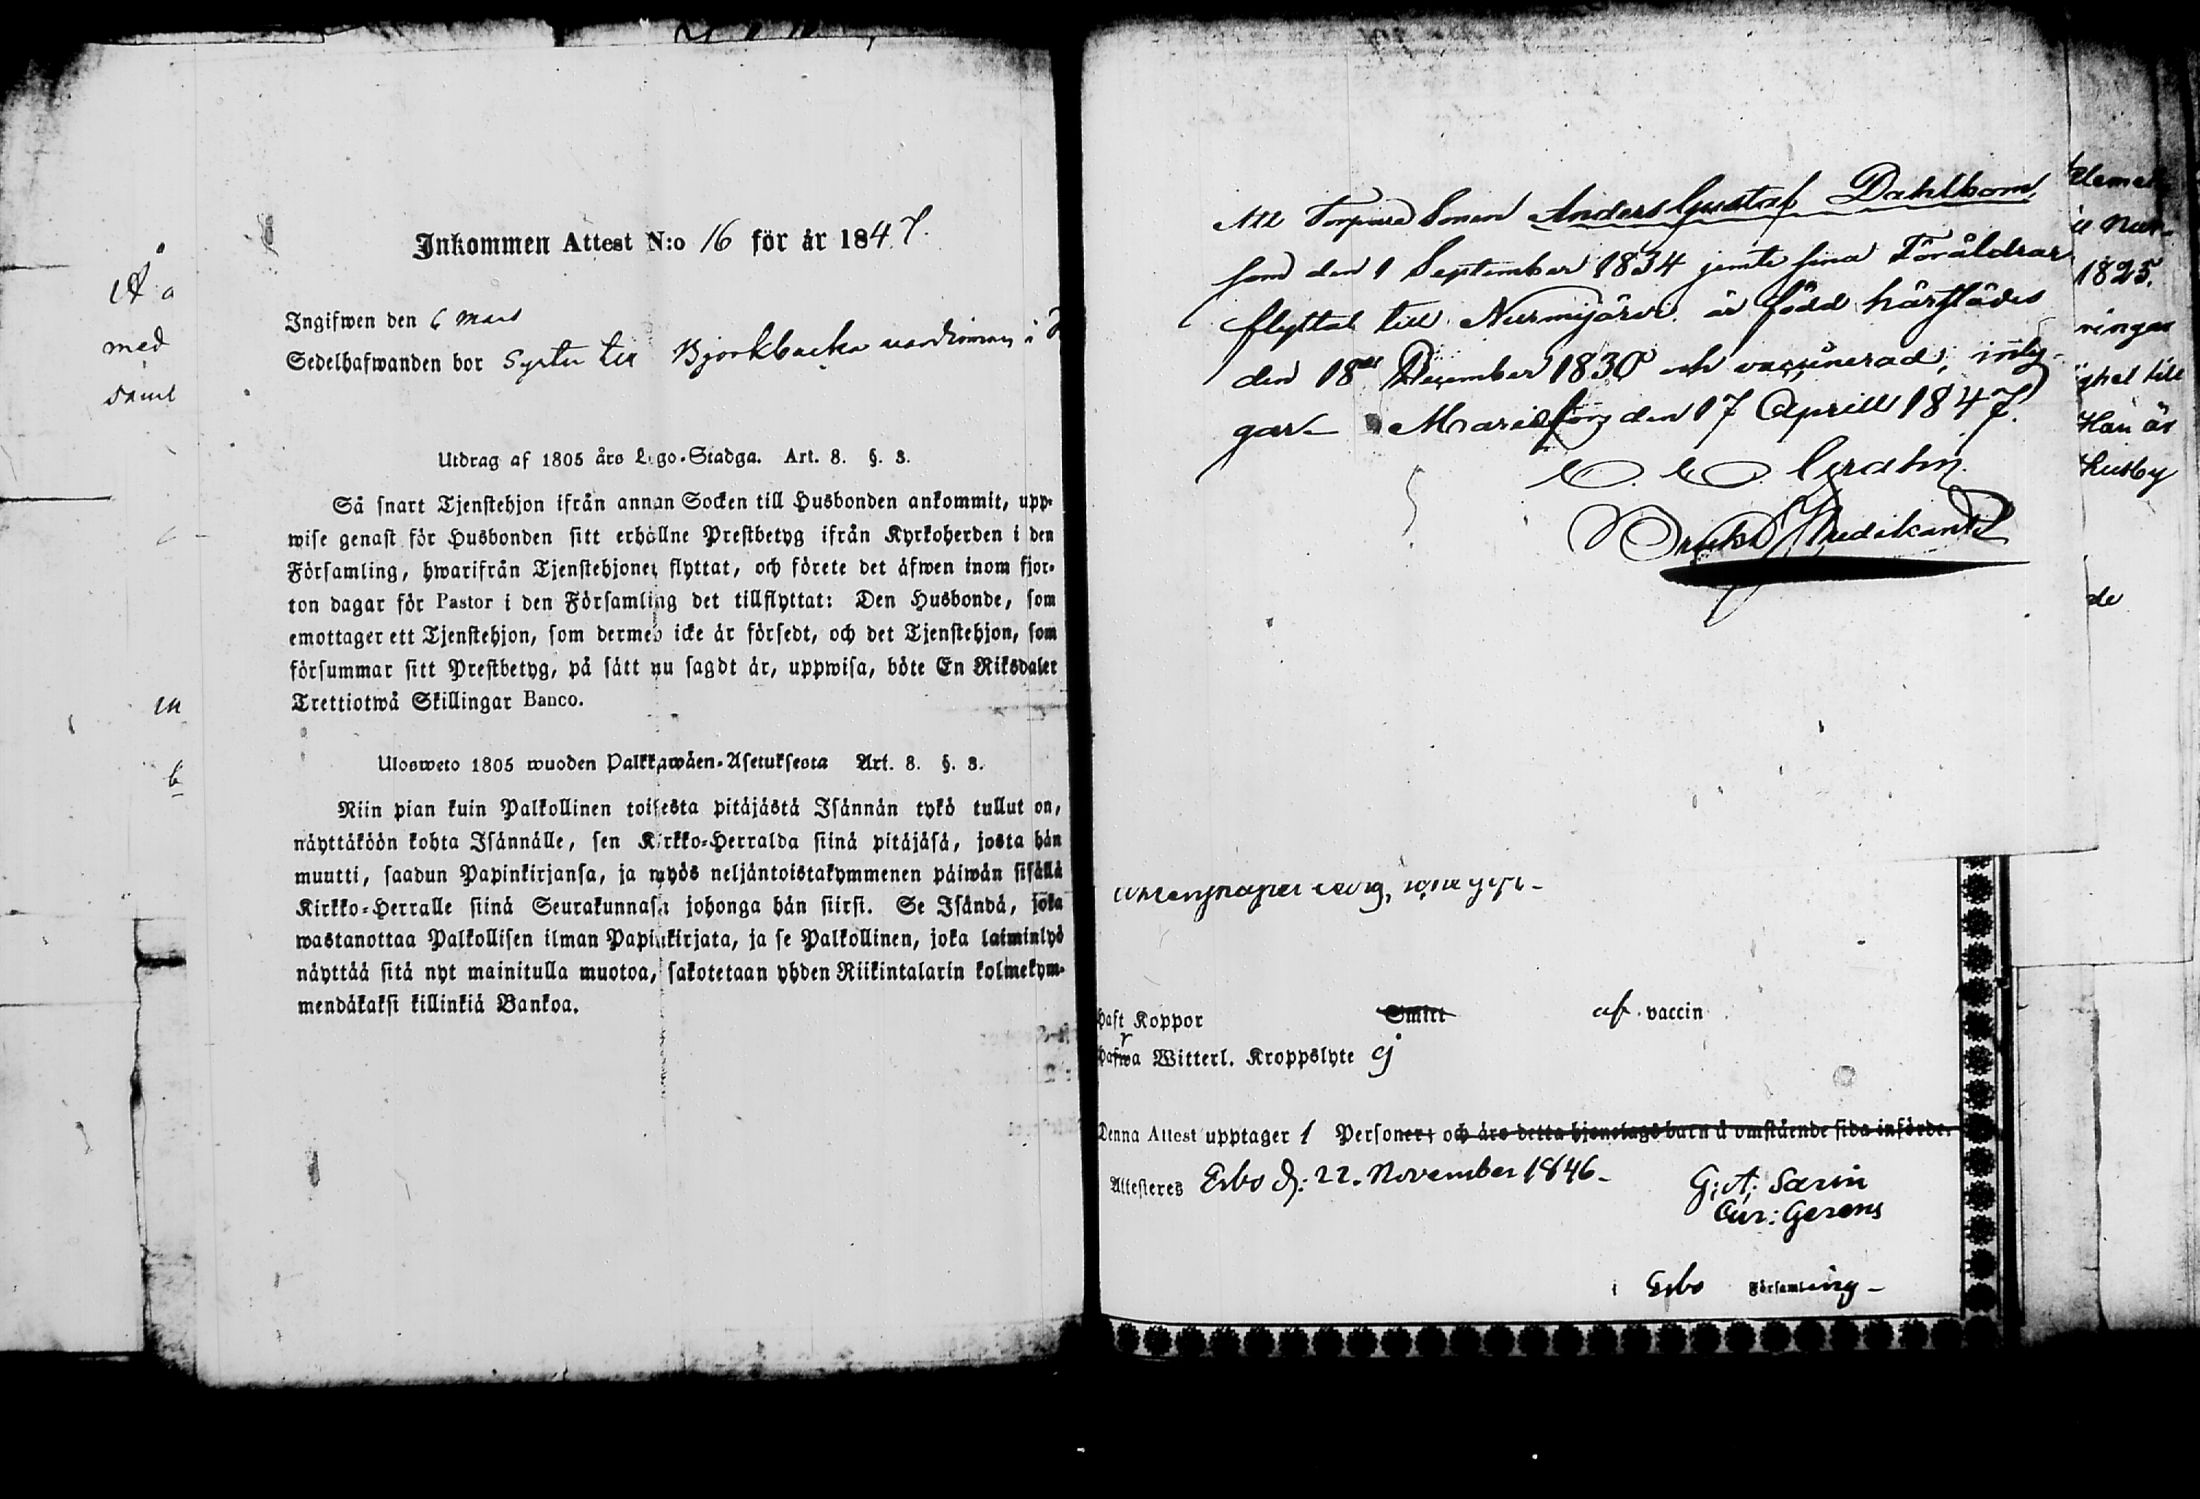 Inkommen Attest N:o 16 för år 1847.
Ingifwen den 6 Mars
Sedelhafwanden bor Syster till Björkbacka värdinnan i
Utdrag af 1805 års Lego-Stadga. Art. 8. §. 3.
Så snart Tjenstehjon ifrån annan Socken till Husbonden ankommit, upp-
wise genast för Husbonden sitt erhållne Prestbetyg ifrån Kyrkoherden i den
Församling, hwarifrån Tjenstehjonet flyttat, och förete det äfwen inom fjor-
ton dagar för Pastor i den Församling det tillflyttat: Den Husbonde, som
emottager ett Tjenstehjon, som dermed icke är försedt, och det Tjenstehjon, som
försummar sitt Prestbetyg, på sätt nu sagdt är, uppwisa, böte En Riksdaler
Trettiotwå Skillingar Banco.
Ulosweto 1805 wuoden Palkkawäen-Asetuksesta Art. 8. §. 3.
Niin pian kuin Palkollinen toisesta pitäjästä Isännän tykö tullut on,
näyttäköön kohta Isännälle, sen Kirkko-Herralda siinä pitäjäsä, josta hän
muutti, saadun Papinkirjansa, ja myös neljäntoistakymmenen päiwän sisällä
Kirkko-Herralle siinä Seurakunnasa johonga hän siirsi. Se Isändä, joka
wastanottaa Palkollisen ilman Papinkirjata, ja se Palkollinen, joka laiminlyö
näyttää sitä nyt mainitulla muotoa, sakotetaan yhden Riikintalarin kolmekym-
mendäkaksi killinkiä Bankoa.
med
samt
Att Torpare Sonen Anders Gustaf Dahlbom,
som den 1 September 1834 jemte sina Föräldrar
flyttat till Nurmijärvi är född härstädes
den 18de December 1830 och vaccinerad, inty-
gar Mariefors den 17 Aprill 1847.
Bruks Predikant
1825.
ringar
ighet till
Han är
Husby
de
haft Koppor Smitt af vaccin
hafwa Witterl. Kroppslyte ej
Denna Attest upptager 1 Personer; och äro detta hjonelags barn å omstående sida införde.
Attesteres Esbo d: 22. November 1846.
G: A: Sarin
Cur: Gerens
i Esbo Församling